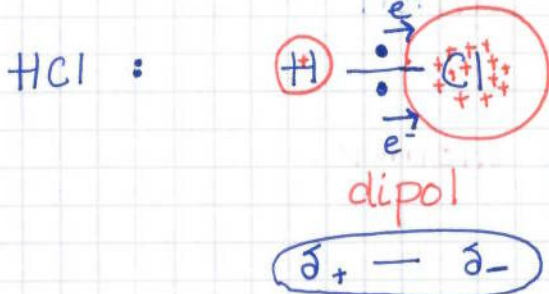 e
HCl : H — Cl
e⁻
dipol
δ₊ — δ₋